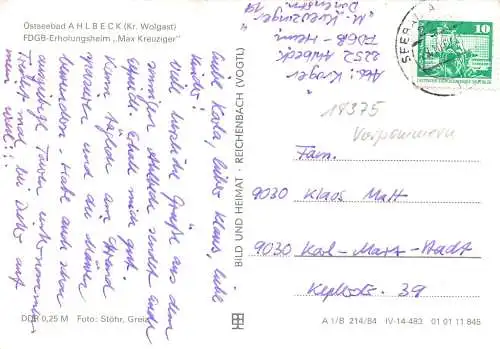 Ostseebad AHLBECK (Kr. Wolgast)
FDGB-Erholungsheim „Max Kreuziger"
Abs.: Kroger
FDGB-Heim
„M. Kreuziger
2252 Ahlbeck
Dünenstr.
Liebe Karla, lieber Klaus, liebe
Kinder!
Viele herzliche Grüße aus dem
sonnigen Ahlbeck sendet euch
Erhole mich gut.
Kann täglich am Strand
spazieren und die Männer
bewundern. Habe auch schon
ausgiebige Touren unternommen.
mal bei Dieter auf
mein
DDR 0,25 M Foto: Stöhr, Greiz
BILD UND HEIMAT · REICHENBACH (VOGTL)
SEEBAD A
10
18375
Vorpommern
Fam.
9030 Klaus Matt
9030 Karl-Marx-Stadt
39
A 1/B 214/84 IV-14-483 01 01 11 845